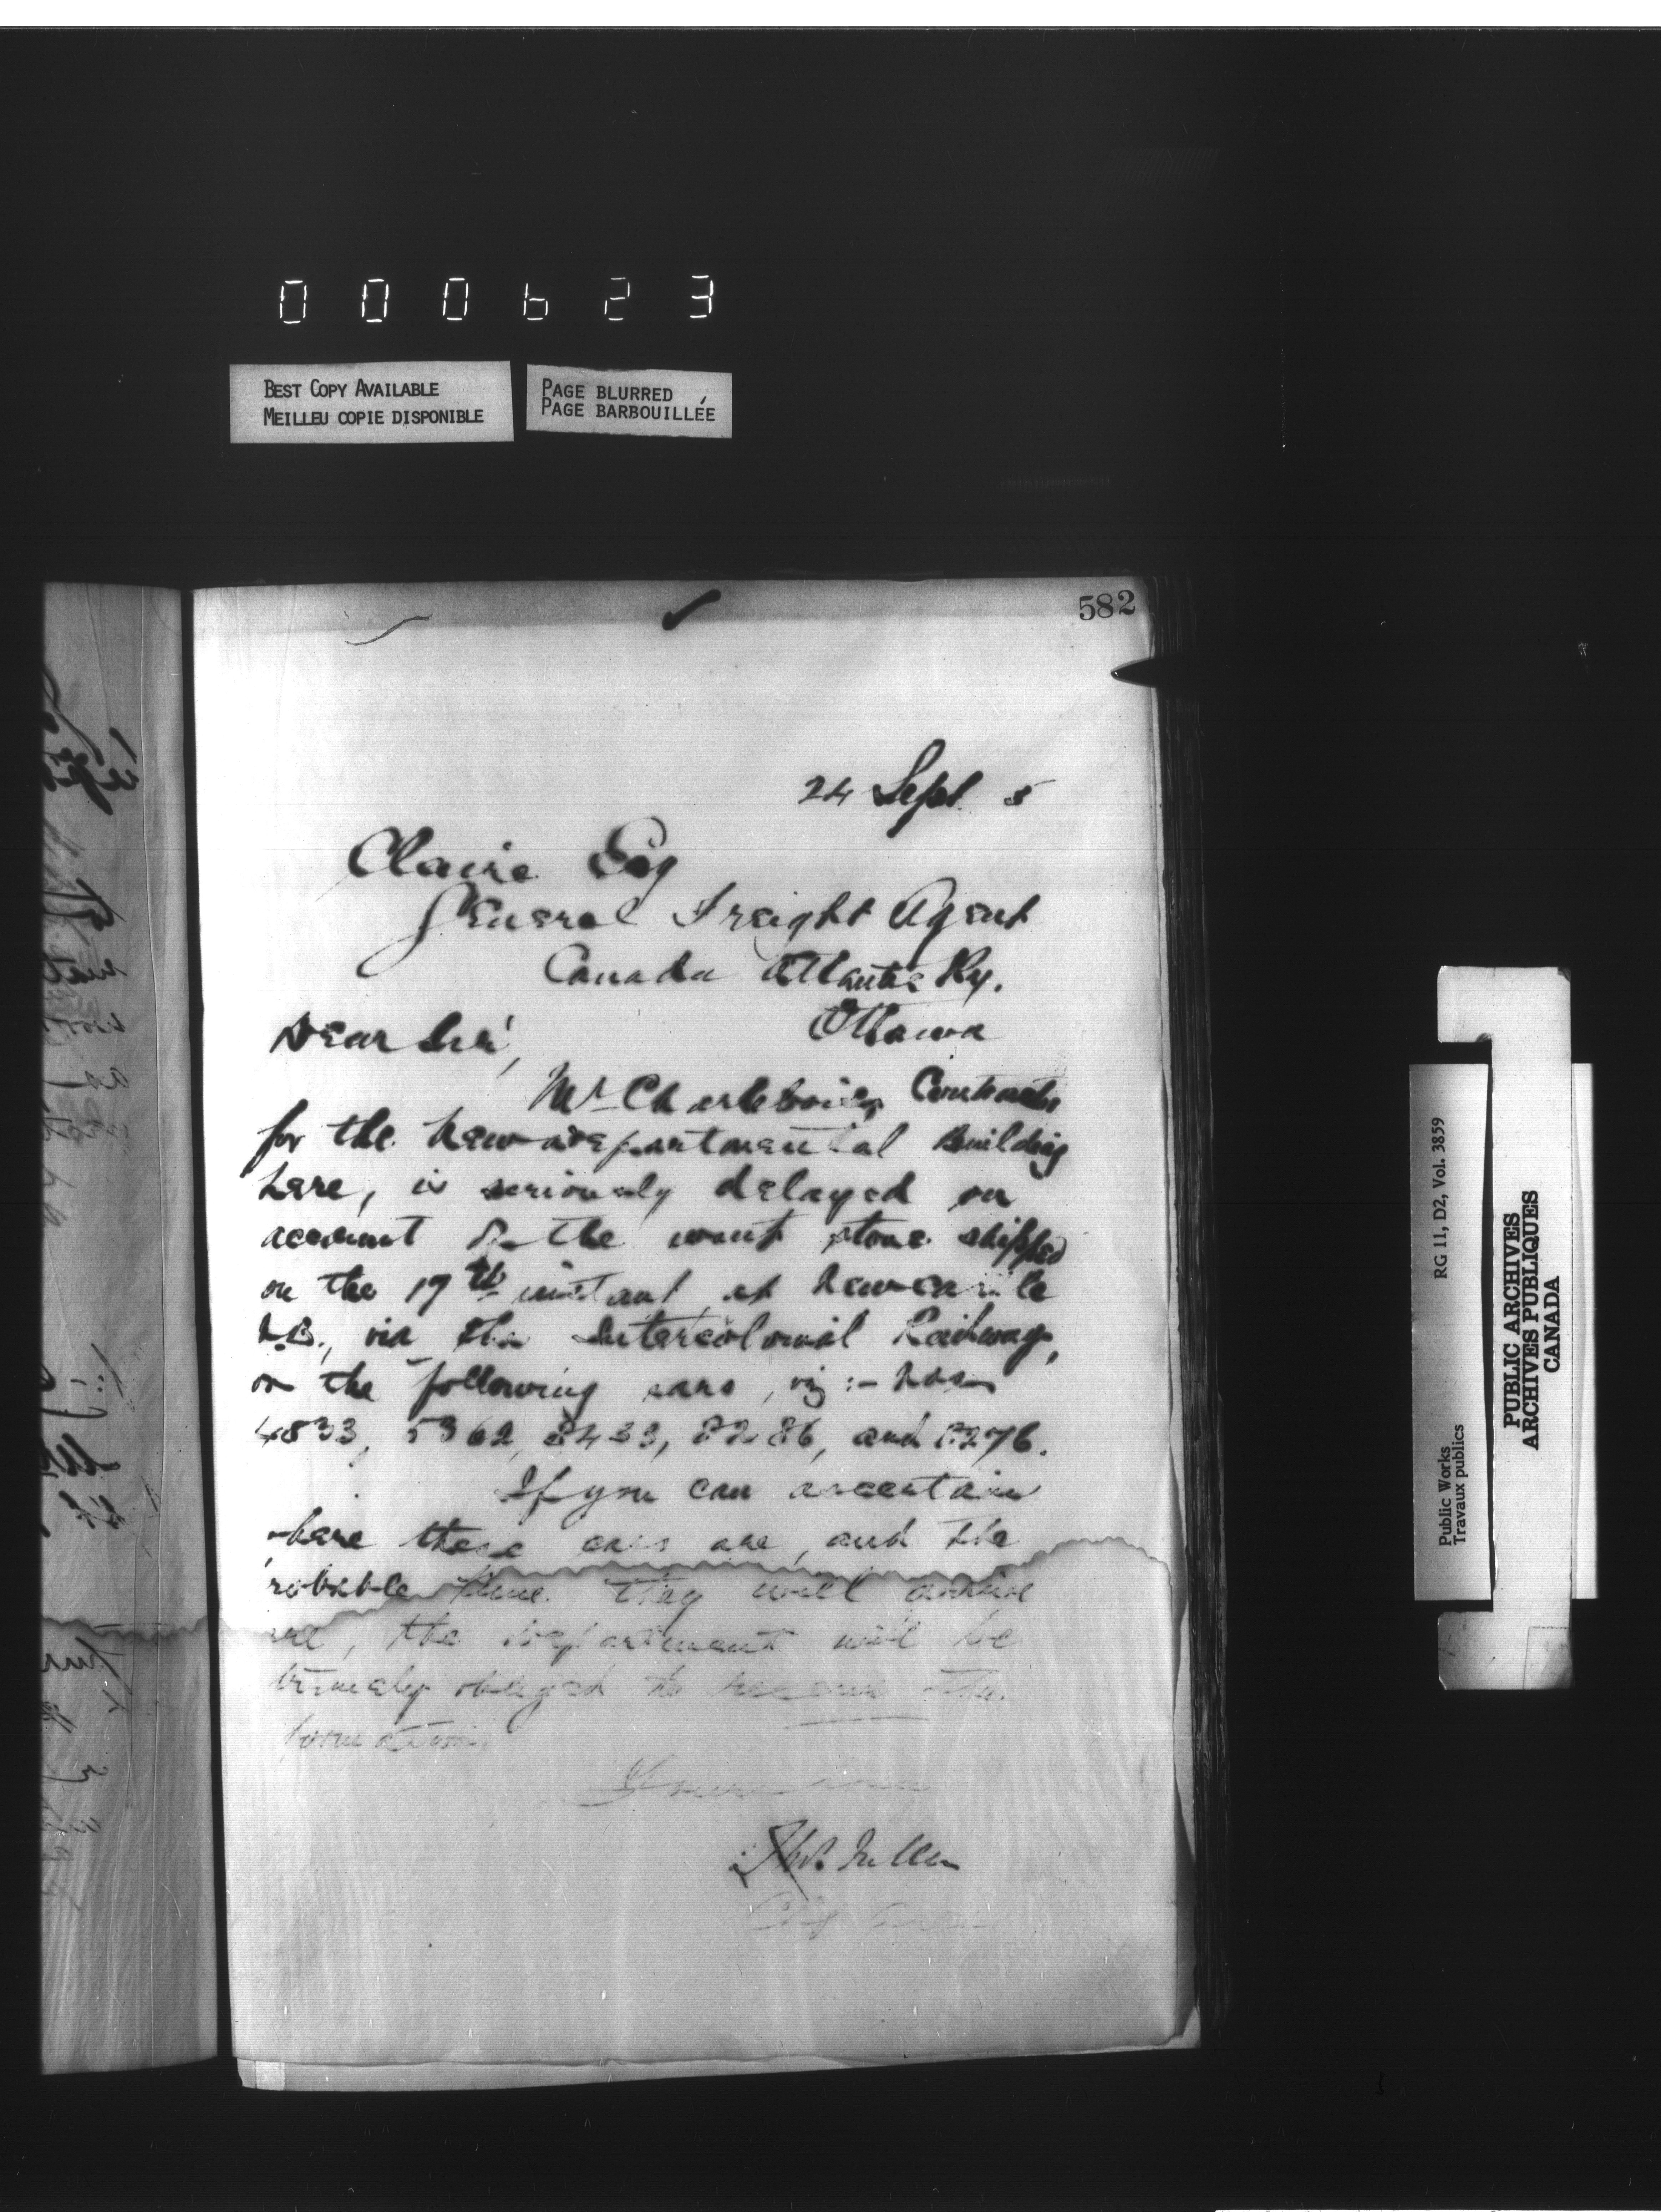 000623
BEST COPY AVAILABLE
MEILLEU COPIE DISPONIBLE
PAGE BLURRED
PAGE BARBOUILLÉE
582
24 Sept. 5
Claire Esq
General Freight Agent
Canada Atlantic Ry.
Ottawa
Dear Sir,
Mr Charlebois, Contractor
for the new departmental Building
here, is seriously delayed on
account of the want stone shipped
on the 17th instant at Newcastle
N.B., via the Intercolonial Railway,
on the following cars, viz:- Nos
4833, 5362, 8433, 8286, and 8276.
If you can ascertain
where these cars are, and the
robable time they will arrive
ere, the Department will be
obliged to receive the
formation.
Yours
Thos. Fuller
Chf Arch
RG 11, D2, Vol. 3859
Public Works
Travaux publics
PUBLIC ARCHIVES
ARCHIVES PUBLIQUES
CANADA